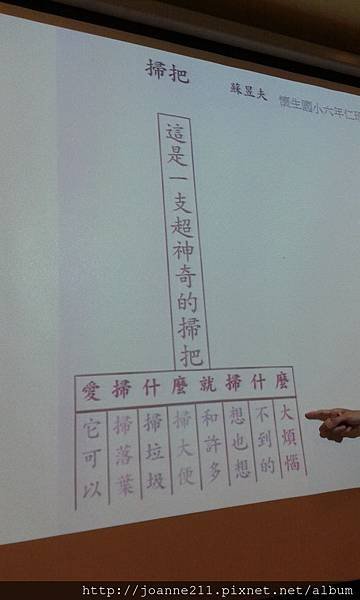 掃把
蘇昱夫
懷生國小六年仁班
這是一支超神奇的掃把
愛掃什麼就掃什麼
它可以
掃落葉
掃垃圾
掃大便
和許多
想也想
不到的
大煩惱
http://joanne211.pixnet.net/album